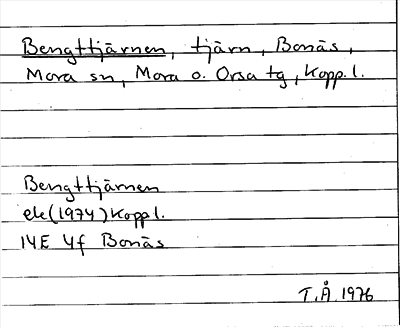 Bengttjärnen, tjärn, Bonäs,
Mora sn, Mora o. Orsa tg, Kopp. l.
Bengttjärnen
ek (1974) Kopp l.
14E 4f Bonäs
T.Å. 1976